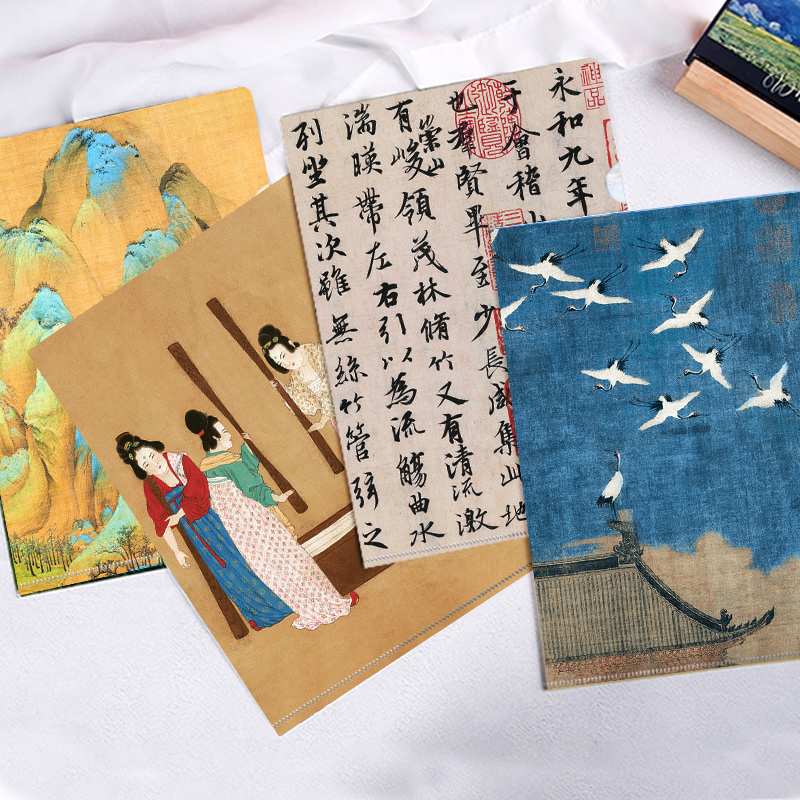 神品
永和九年
于會稽山
也羣賢畢至少長咸集此地
有崇山峻領茂林脩竹又有清流激
湍暎帶左右引以為流觴曲水
列坐其次雖無絲竹管弦之